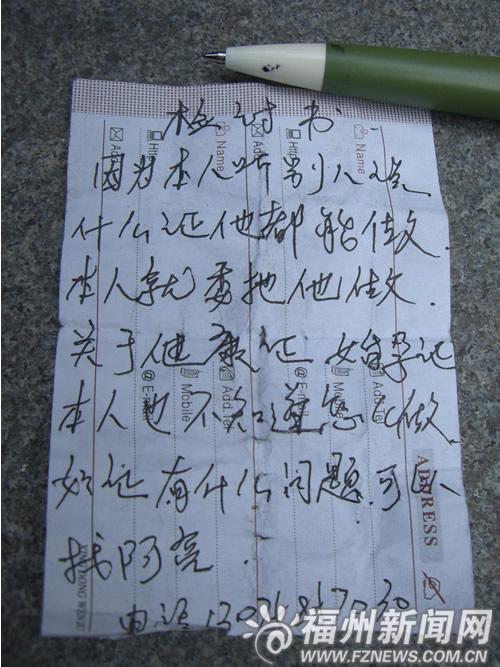 检讨书
因为本人听别人说
什么证他都能做.
本人就委托他做.
关于健康证 婚孕证
本人也不知道怎么做.
如证有什么问题.可以
找阿亮.
电话
Name
Http
Add
Name
@ E-mail
Mobile
Add.Tel
Mobile
Add.Tel
ADDRESS
福州新闻网
WWW.FZNEWS.COM.CN